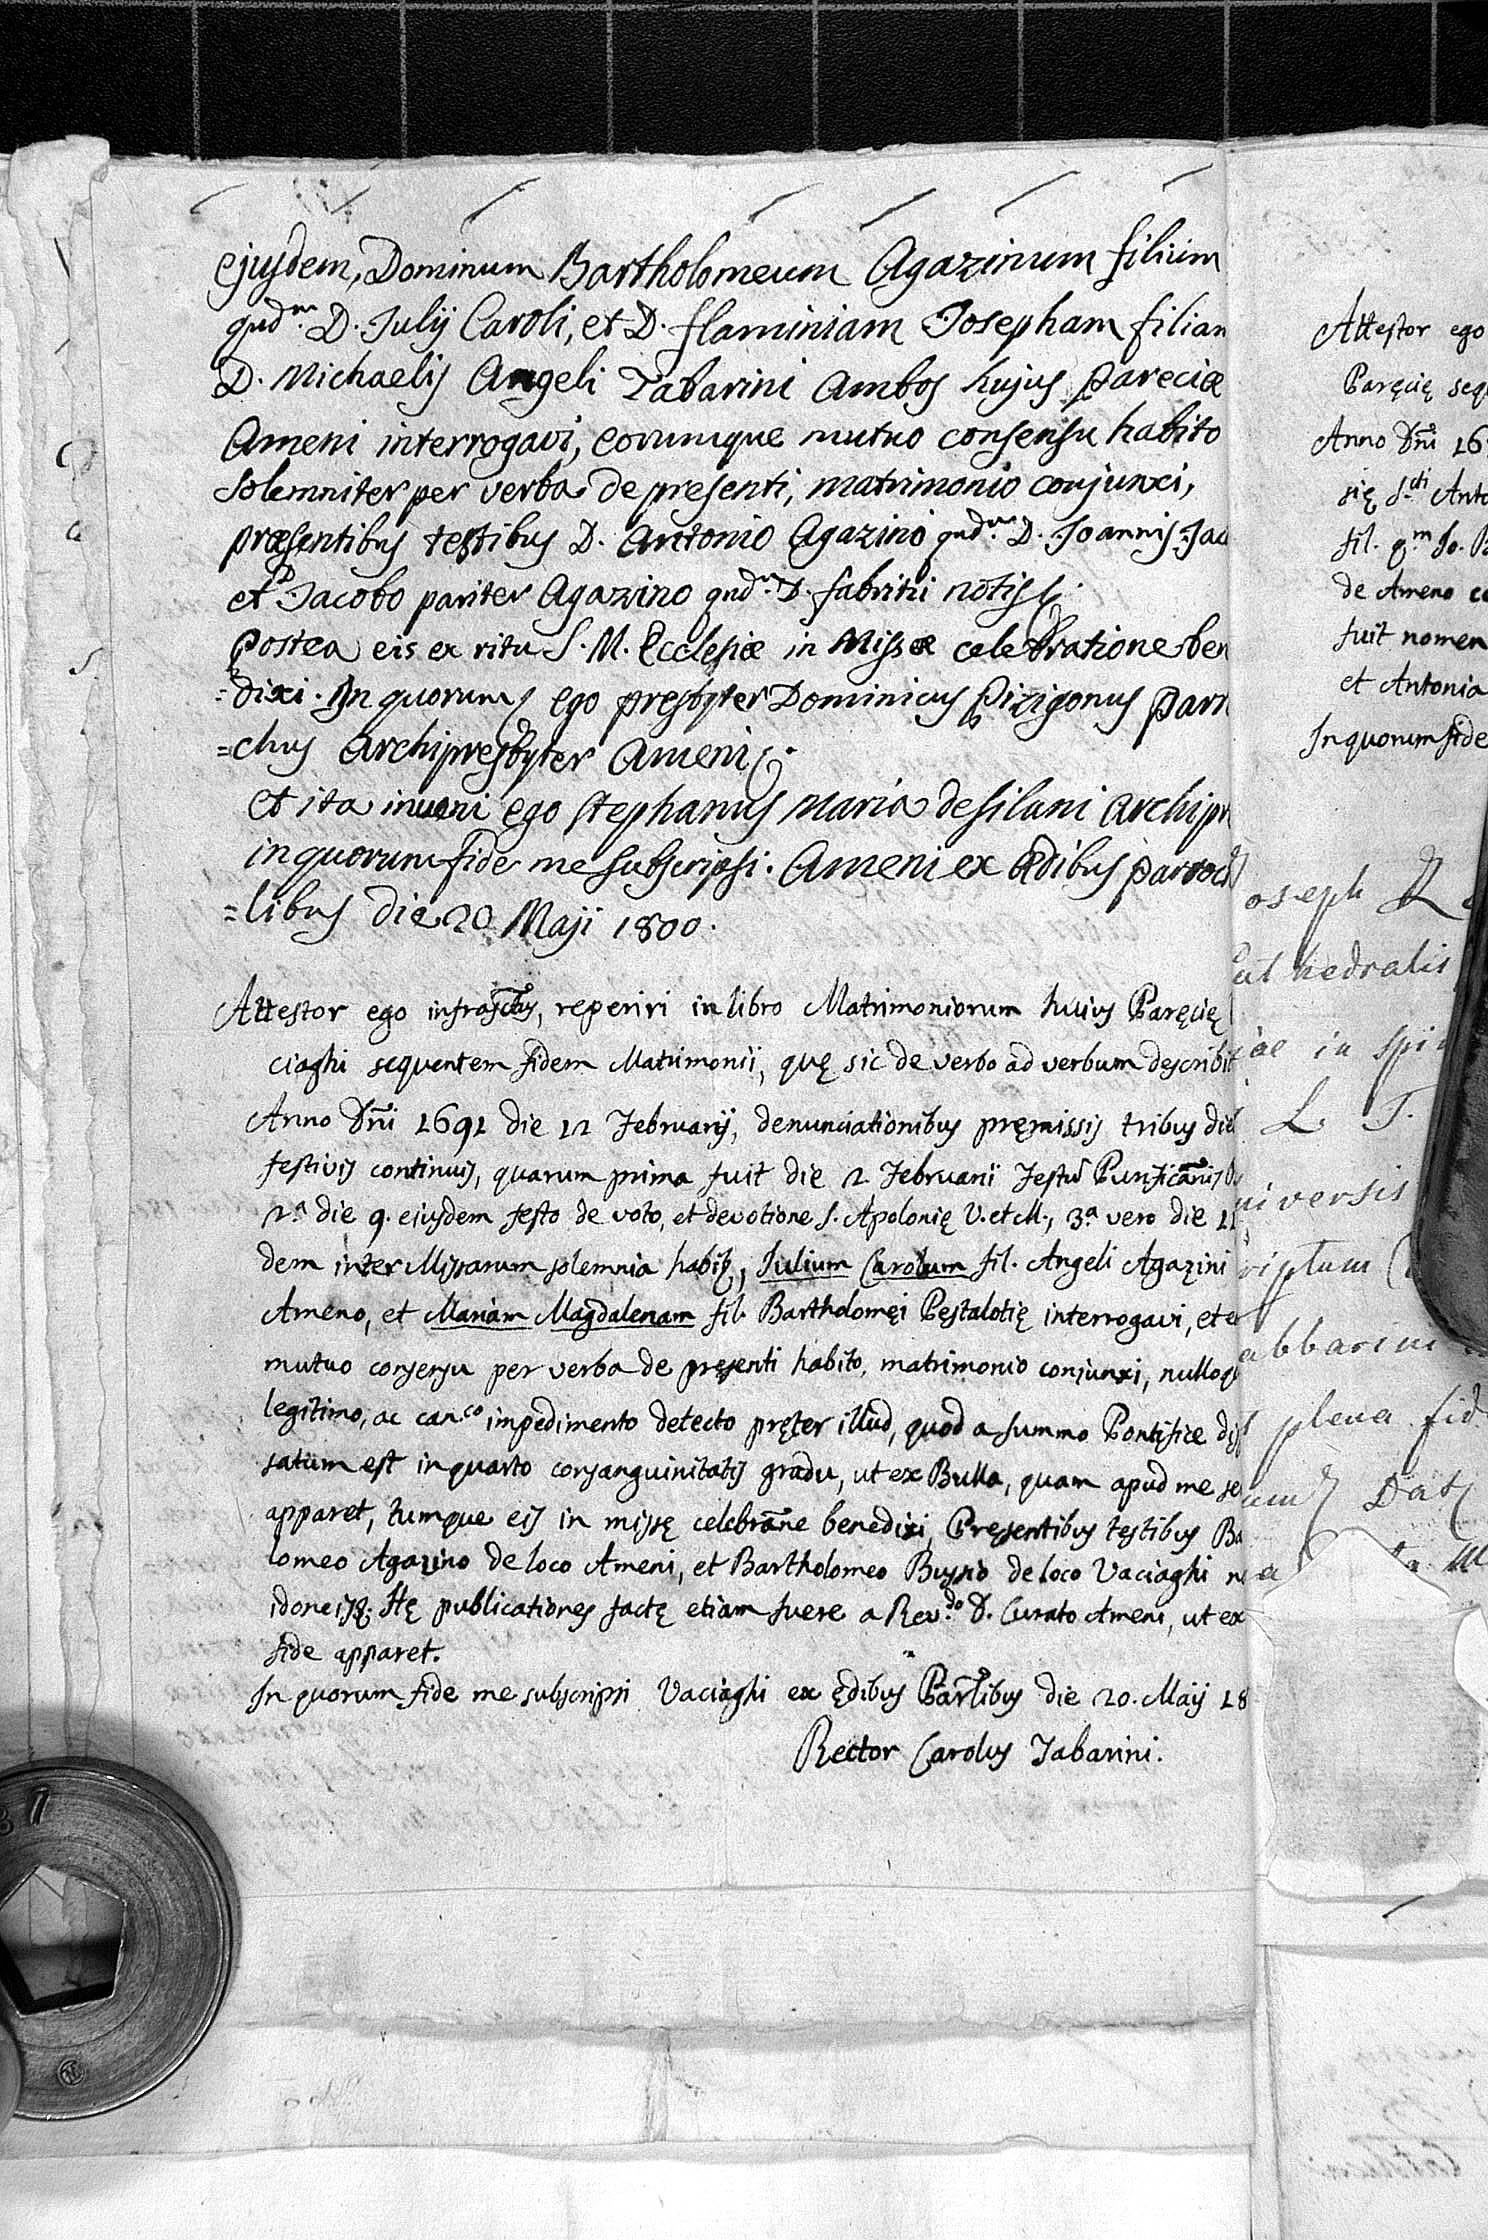 ejusdem, Dominum Bartholomeum Agazinum filium
qndm. D. Julij Caroli, et D. Flaminiam Josepham filiam
D. Michaelis Angeli Tabarini Ambos hujus Pareciæ
Ameni interrogavi, eorumque mutuo consensu habito
Solemniter per verba de presenti, matrimonio conjunxi,
præsentibus testibus D. Antonio Agazino qndm. D. Joannis Jac
et Jacobo pariter Agazino qndm. D. Fabritii notis
Postea eis ex ritu S. M. Ecclesiæ in Missæ celebratione ben
=dixi. In quorum ego presbyter Dominicus Pizigonus Paro
=chus Archipresbyter Ameni
et ita inveni ego Stephanus Maria Desilani Archipr
in quorum fide me subscripsi. Ameni ex Ædibus paroch
=libus die 20 Maji 1800.
Attestor ego infrasctus, reperiri in libro Matrimoniorum huius Paręcię
ciaghi sequentem fidem Matrimonii, quę sic de verbo ad verbum describit
Anno Dñi 1691 die 12 Februarij, denunciationibus pręmissis tribus dieb
festivis continuis, quarum prima fuit die 2 Februarii
2.a die 9. ejusdem festo de voto, et devotione S. Apolonię V. et M., 3.a vero die 11
dem inter Missarum solemnia habitis, Julium Carolum fil. Angeli Agazini
Ameno, et Mariam Magdalenam fil. Bartholomęi Pęstalotię interrogavi, et e
mutuo consensu per verba de pręsenti habito, matrimonio conjunxi, nulloq
legitimo, ac can.co impedimento detecto pręter illud, quod a summo Pontifice dis
satum est in quarto consanguinitatis gradu, ut ex Bulla, quam apud me se
apparet, tumque eis in missę celebrãne benedixi, Pręsentibus tęstibus Ba
lomeo Agazino de loco Ameni, et Bartholomeo de loco Vaciaghi n
idoneis. Hę publicationes factę etiam fuere a Rev.do D. Curato Ameni, ut ex
fide apparet.
In quorum fide me subscripsi Vaciaghi ex ędibus Par̃libus die 20. Maij 18
Rector Carolus Tabarini.
Attestor ego
Paręcię seq
Anno Dñi 16
się S.cti Anto
fil. q.m Jo. B
de Ameno co
fuit nomen
et Antonia
In quorum fide
oseph
athedralis
iæ in spi
L. T.
niversis
riptum
abbarini
plena fid
Dat